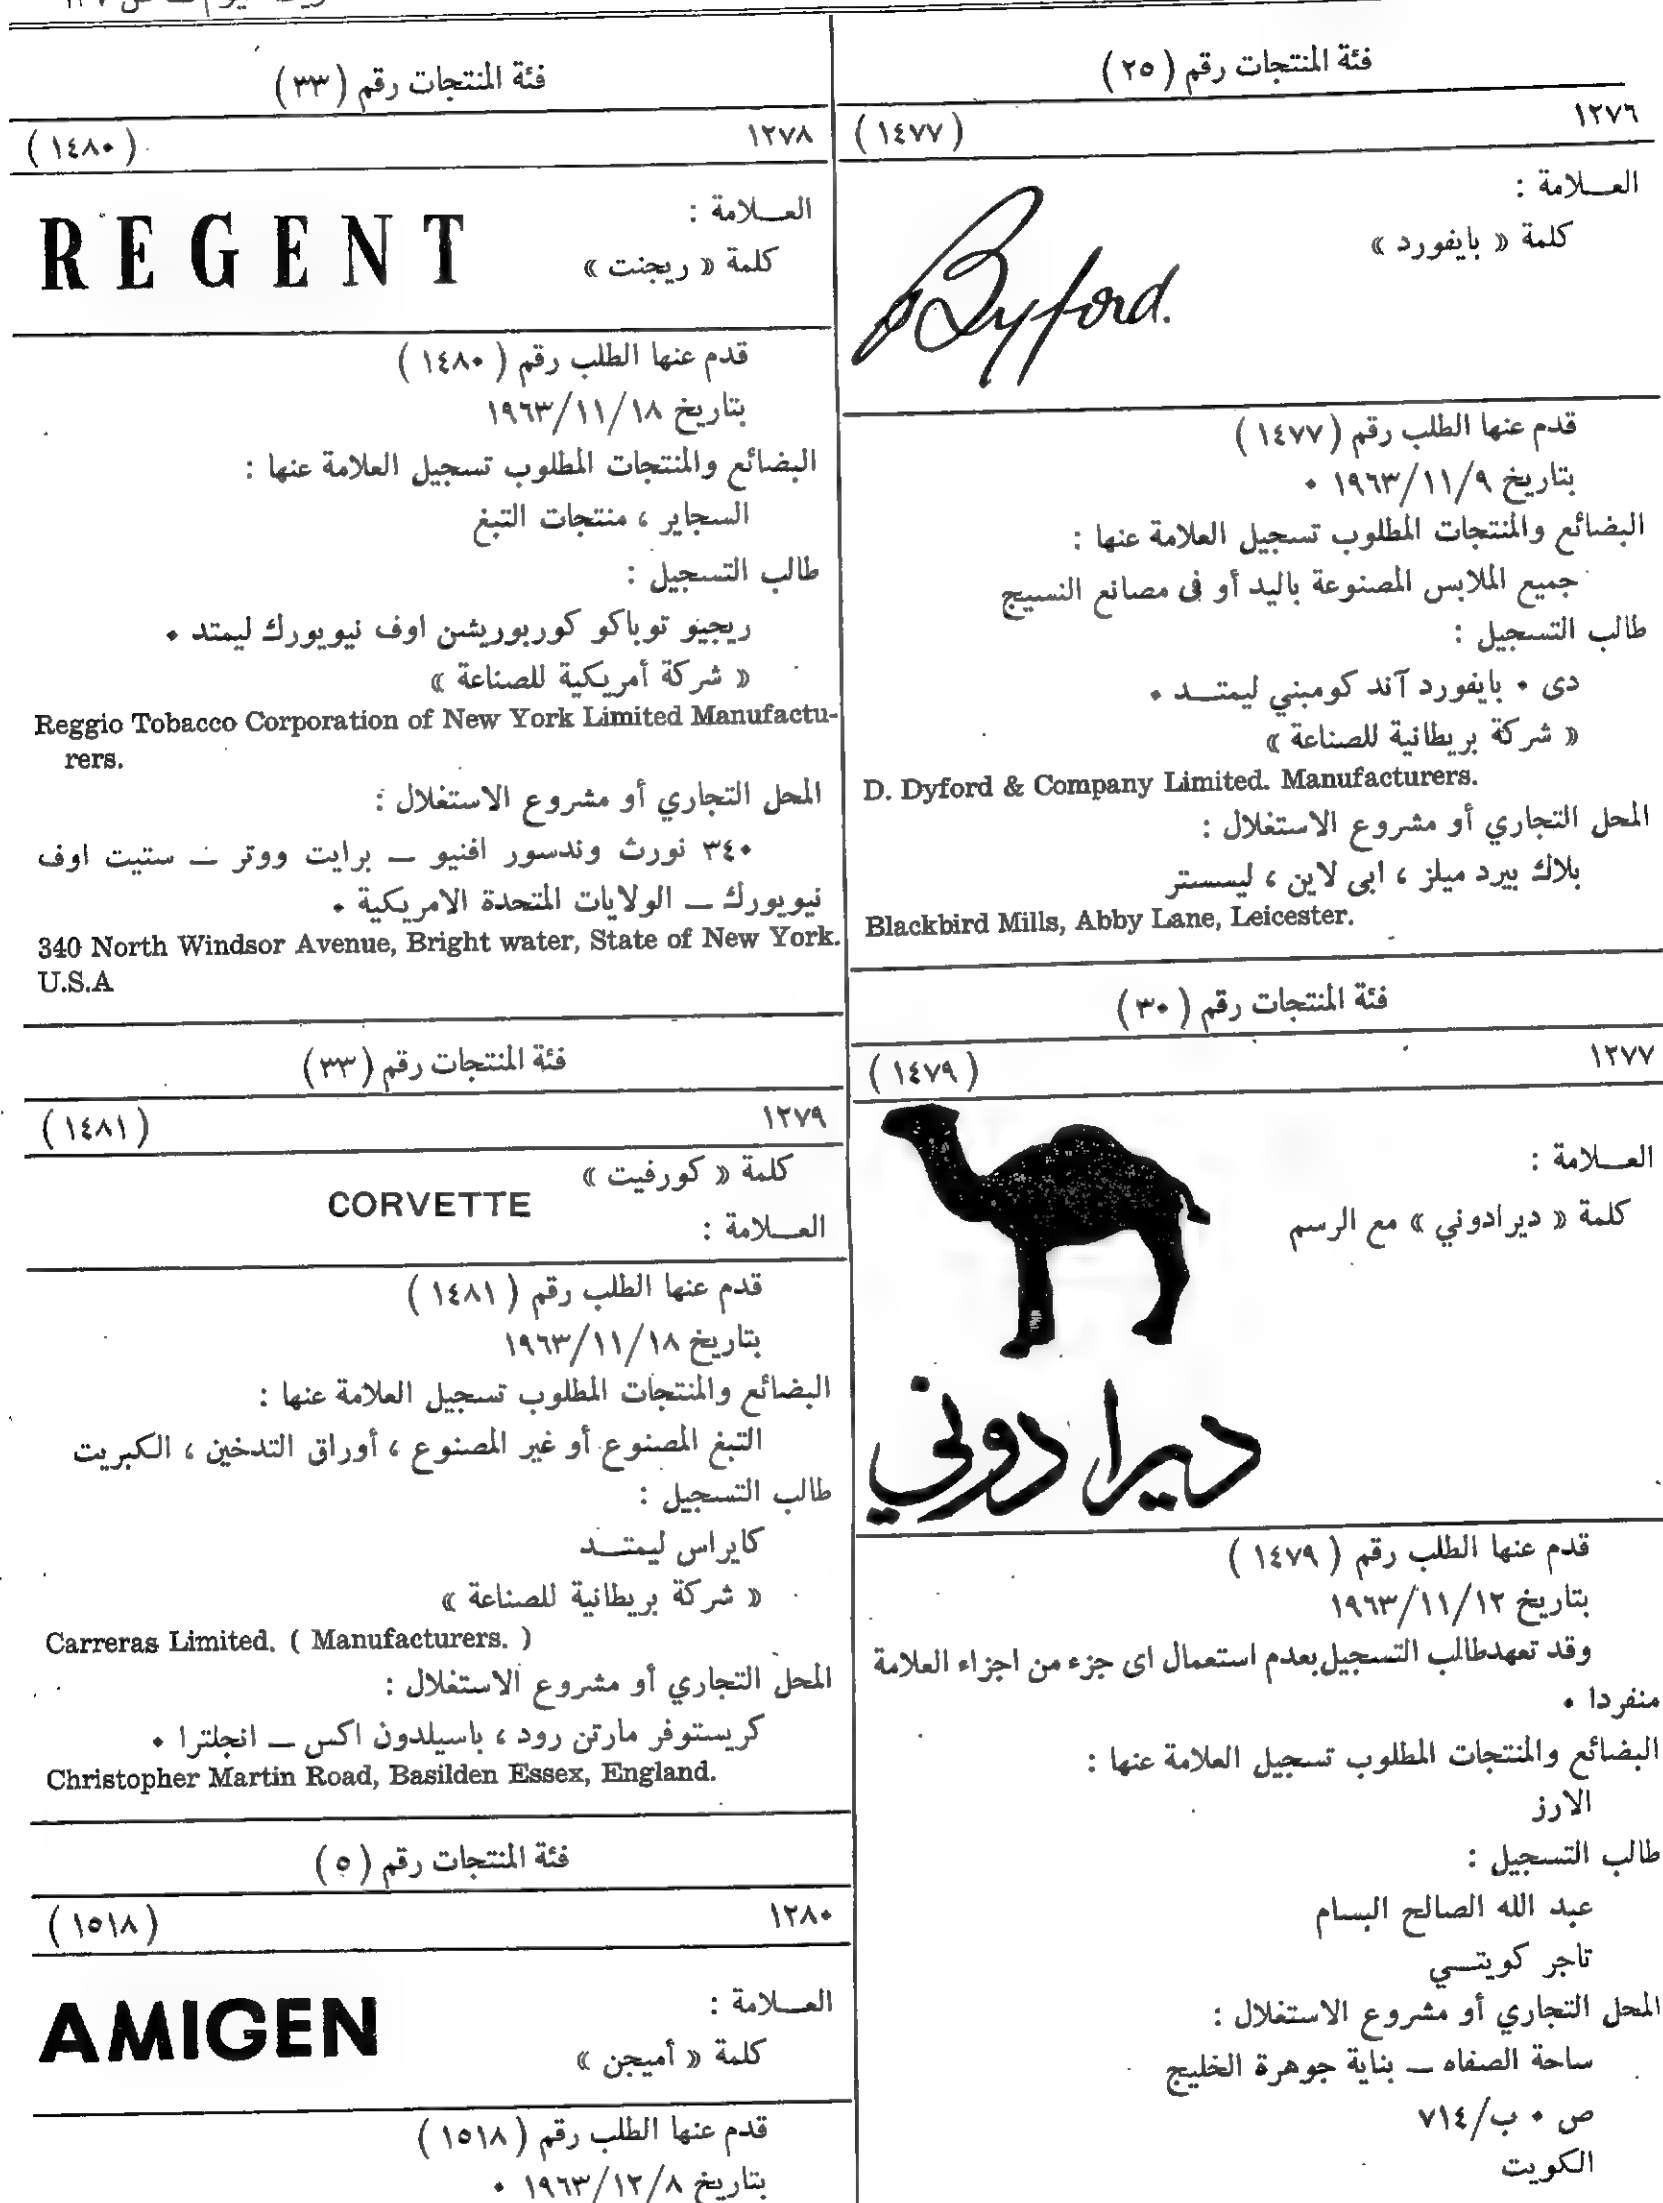 فئة المنتجات رقم ( ٢٥ )
١٢٧٦
( ١٤٧٧ )
العـــلامة :
كلمة « بايفورد »
Byford.
قدم عنها الطلب رقم ( ١٤٧٧ )
بتاريخ ١٩٦٣/١١/٩ ٠
البضائع والمنتجات المطلوب تسجيل العلامة عنها :
جميع الملابس المصنوعة باليد أو فى مصانع النسيج
طالب التسجيل :
دى ٠ بايفورد آند كومبني ليمتـــد ٠
« شركة بريطانية للصناعة »
D. Dyford & Company Limited. Manufacturers.
المحل التجاري أو مشروع الاستغلال :
بلاك بيرد ميلز ، ابى لاين ، ليسستر
Blackbird Mills, Abby Lane, Leicester.
فئة المنتجات رقم ( ٣٠ )
١٢٧٧
( ١٤٧٩ )
العـــلامة :
كلمة « ديرادوني » مع الرسم
ديرا دوني
قدم عنها الطلب رقم ( ١٤٧٩ )
بتاريخ ١٩٦٣/١١/١٢
وقد تعهدطالب التسجيل بعدم استعمال اى جزء من اجزاء العلامة
منفردا ٠
البضائع والمنتجات المطلوب تسجيل العلامة عنها :
الارز
طالب التسجيل :
عبد الله الصالح البسام
تاجر كويتـــي
المحل التجاري أو مشروع الاستغلال :
ساحة الصفاه ــ بناية جوهرة الخليج
ص ٠ ب/٧١٤
الكويت
فئة المنتجات رقم ( ٣٣ )
١٢٧٨
( ١٤٨٠ )
العـــلامة :
كلمة « ريجنت »
REGENT
قدم عنها الطلب رقم ( ١٤٨٠ )
بتاريخ ١٩٦٣/١١/١٨
البضائع والمنتجات المطلوب تسجيل العلامة عنها :
السجاير ، منتجات التبغ
طالب التسجيل :
ريجيو توباكو كوربوريشن اوف نيويورك ليمتد ٠
« شركة أمريكية للصناعة »
Reggio Tobacco Corporation of New York Limited Manufactu-
rers.
المحل التجاري أو مشروع الاستغلال :
٣٤٠ نورث وندسور افنيو ــ برايت ووتر ــ ستيت اوف
نيويورك ــ الولايات المتحدة الامريكية ٠
340 North Windsor Avenue, Bright water, State of New York.
U.S.A
فئة المنتجات رقم ( ٣٣ )
١٢٧٩
( ١٤٨١ )
كلمة « كورفيت »
CORVETTE
العـــلامة :
قدم عنها الطلب رقم ( ١٤٨١ )
بتاريخ ١٩٦٣/١١/١٨
البضائع والمنتجات المطلوب تسجيل العلامة عنها :
التبغ المصنوع أو غير المصنوع ، أوراق التدخين ، الكبريت
طالب التسجيل :
كايراس ليمتـــد
« شركة بريطانية للصناعة »
Carreras Limited. ( Manufacturers. )
المحل التجاري أو مشروع الاستغلال :
كريستوفر مارتن رود ، باسيلدون اكس ــ انجلترا ٠
Christopher Martin Road, Basilden Essex, England.
فئة المنتجات رقم ( ٥ )
١٢٨٠
( ١٥١٨ )
العـــلامة :
كلمة « أميجن »
AMIGEN
قدم عنها الطلب رقم ( ١٥١٨ )
بتاريخ ١٩٦٣/١٢/٨ ٠